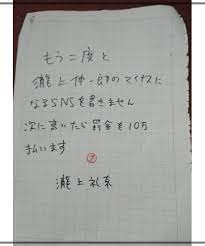 もう二度と
瀧上伸一郎のマイナスに
なるSNSを書きません
次に書いたら罰金を10万
払います
瀧上礼奈